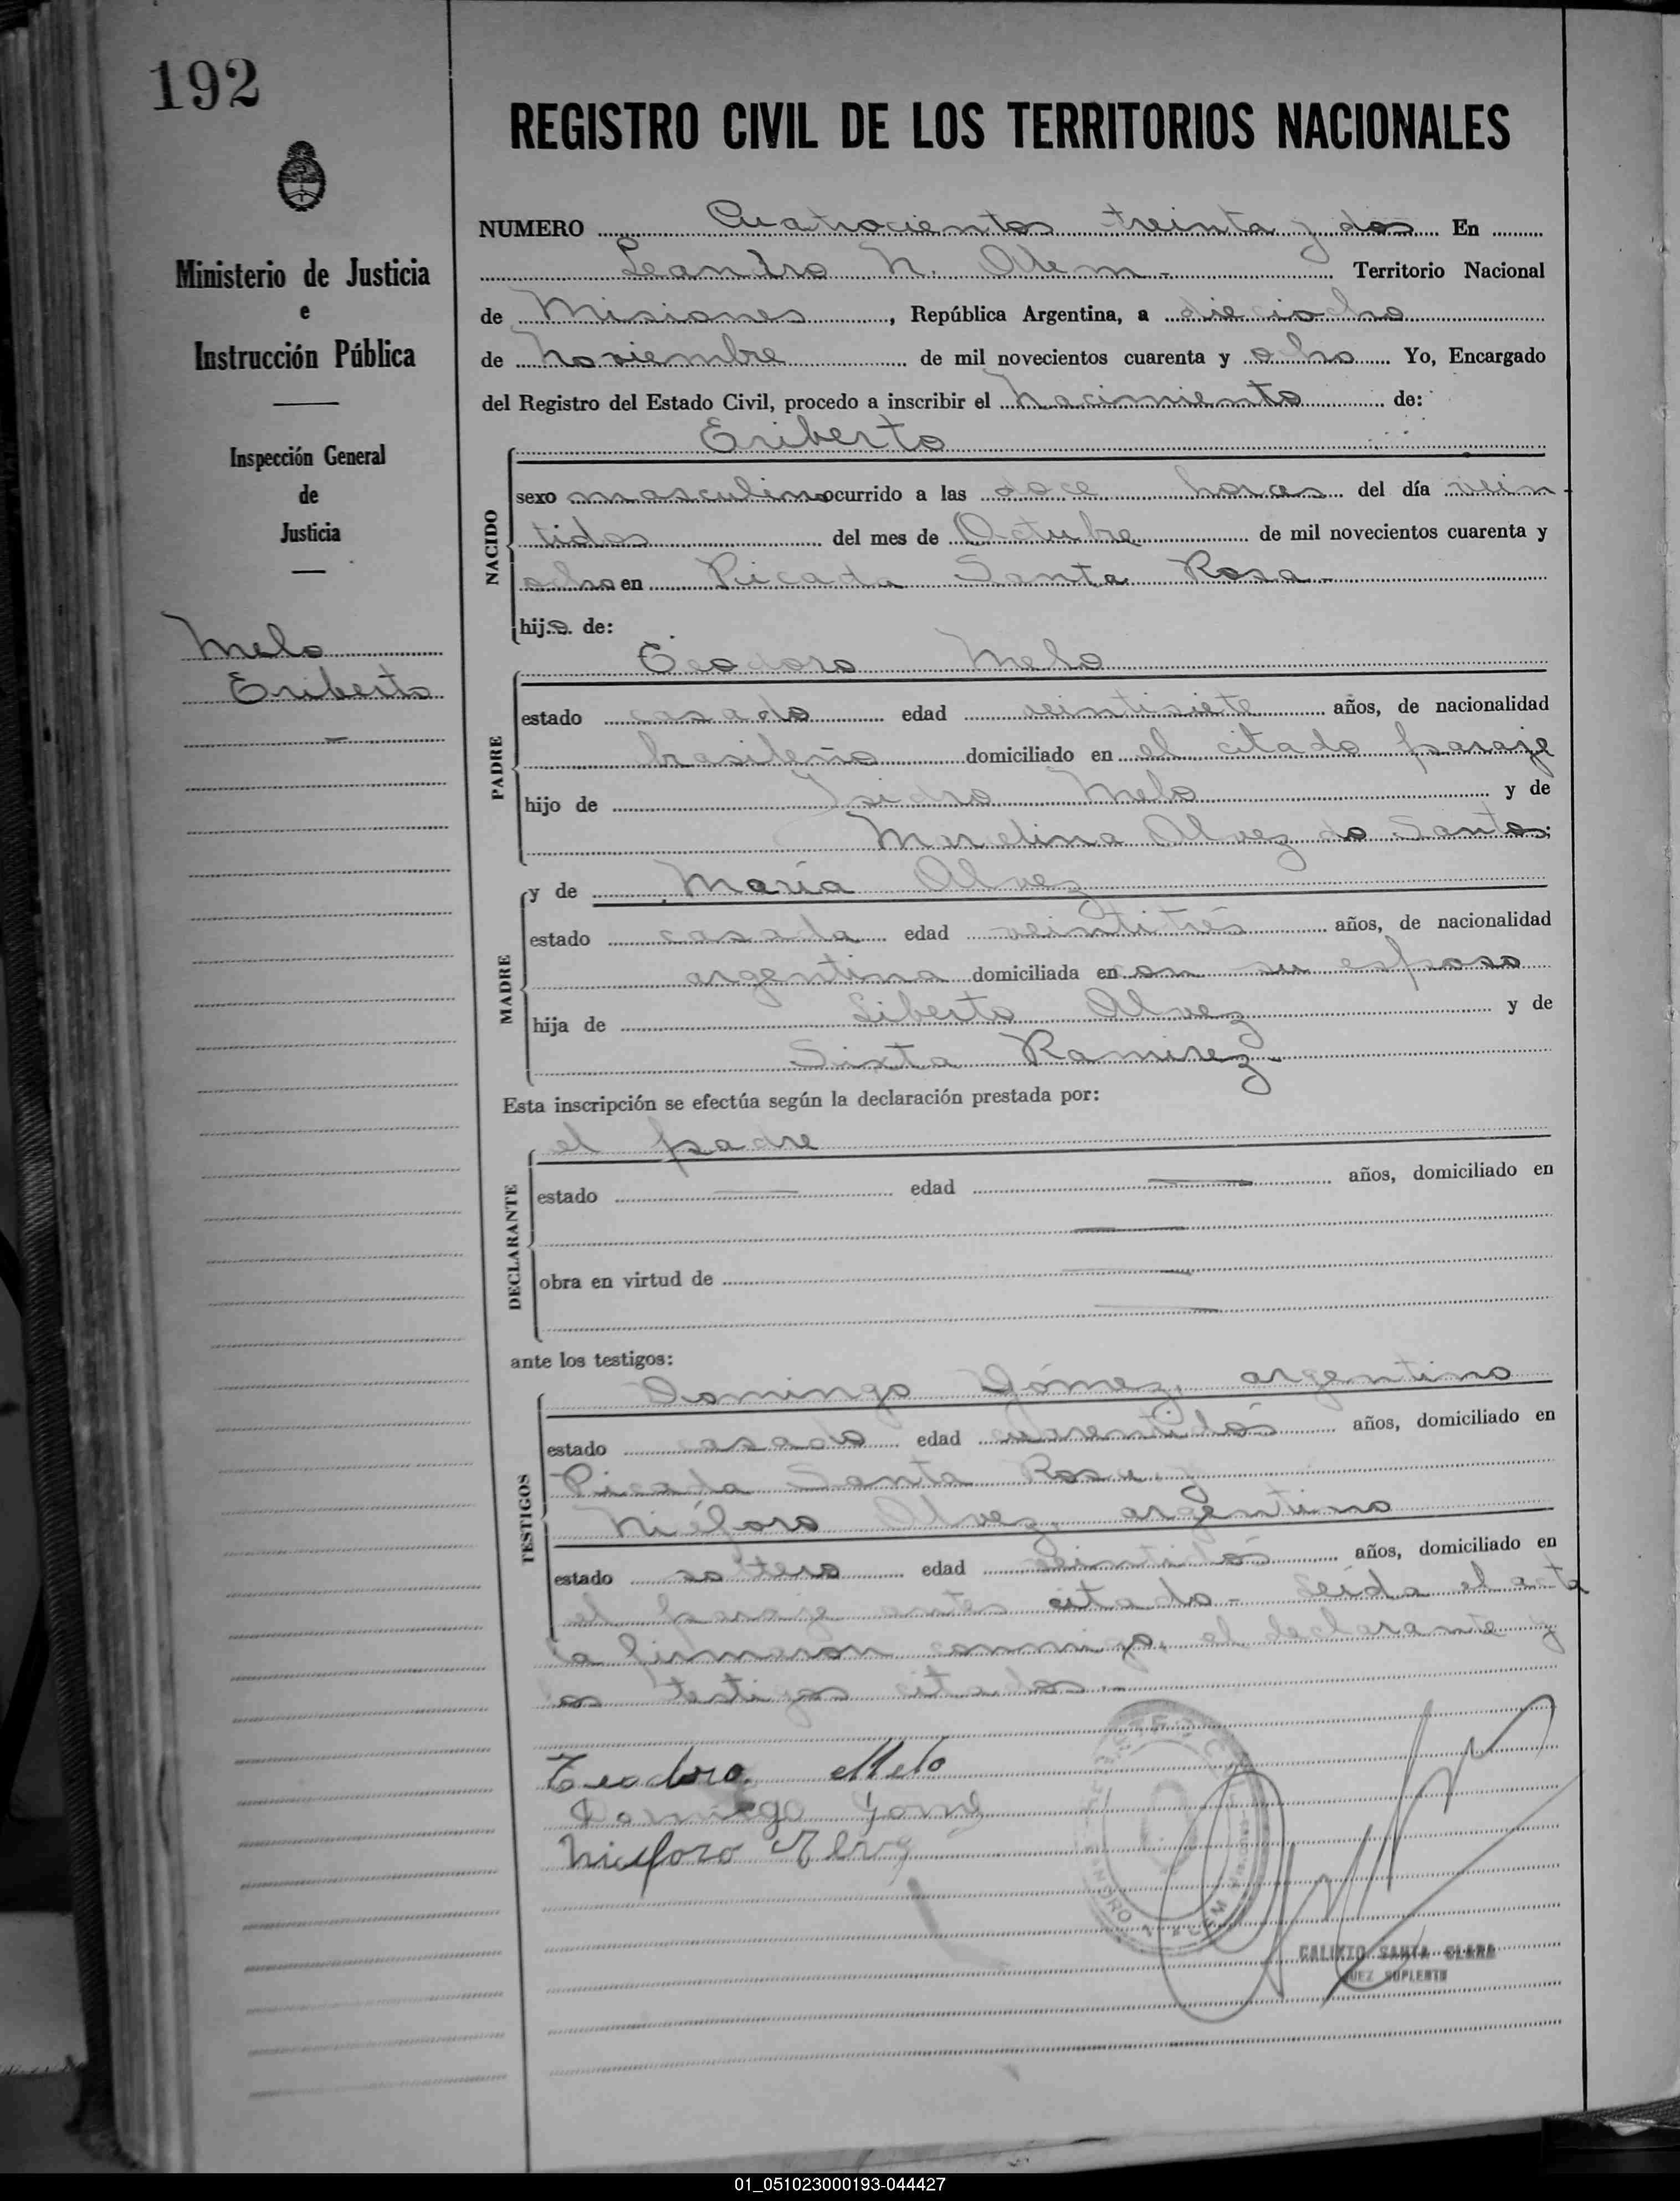 192
REGISTRO CIVIL DE LOS TERRITORIOS NACIONALES
Ministerio de Justicia
e
Instrucción Pública
Inspección General
de
Justicia
Melo
Eriberto
NUMERO Cuatrocientos treinta y dos En
Leandro N. Alem.- Territorio Nacional
de Misiones, República Argentina, a dieciocho
de noviembre de mil novecientos cuarenta y ocho Yo, Encargado
del Registro del Estado Civil, procedo a inscribir el nacimiento de:
NACIDO
Eriberto
sexo masculino ocurrido a las doce horas del día vein-
tidos del mes de Octubre de mil novecientos cuarenta y
ocho en Picada Santa Rosa.-
hijo de:
PADRE
Teodoro Melo
estado casado edad veintisiete años, de nacionalidad
brasileño domiciliado en el citado paraje
hijo de Isidro Melo y de
Alvez do Santos;
MADRE
y de María Alvez
estado casada edad veintitrés años, de nacionalidad
argentina domiciliada en con su esposo
hija de Liberto Alvez y de
Sixta Ramirez.-
Esta inscripción se efectúa según la declaración prestada por:
DECLARANTE
el padre
estado — edad — años, domiciliado en
—
obra en virtud de —
—
ante los testigos:
TESTIGOS
Domingo Gómez, argentino
estado casado edad años, domiciliado en
Picada Santa Rosa y
Niéforo Alvez, argentino
estado soltero edad veintidós años, domiciliado en
el paraje antes citado.- Leida el acta
la firmaron conmigo, el declarante y
los testigos citados.-
Teodoro Melo
Domingo Gomez
Nieforo Alvez
CALIXTO SANTA CLARA
JUEZ SUPLENTE
01_051023000193-044427